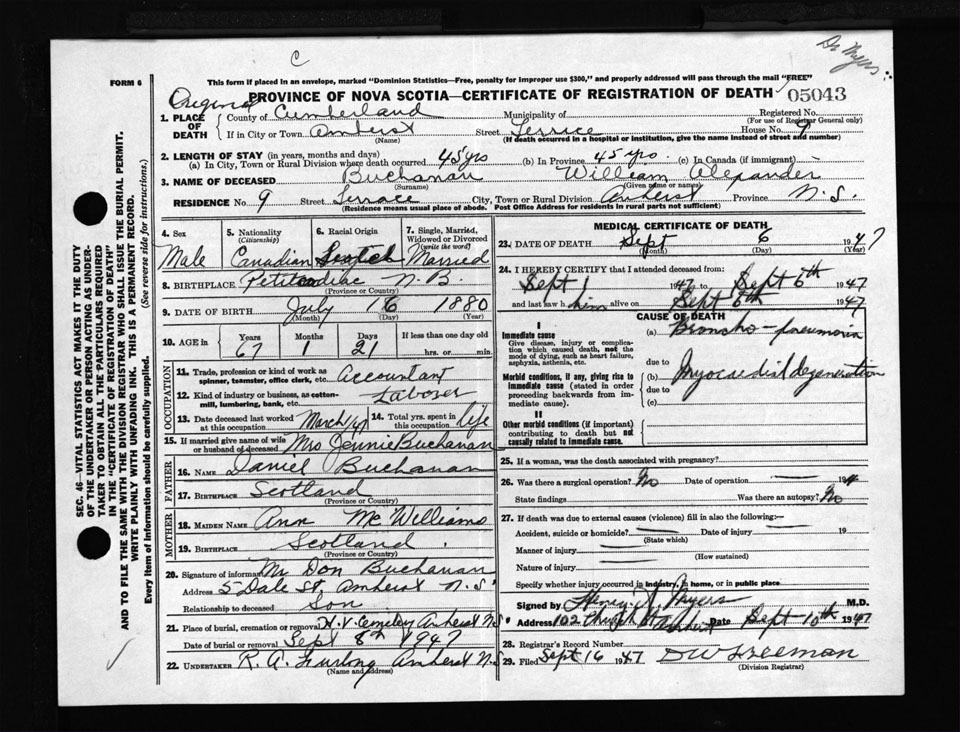 C
Dr Myers
FORM 6
This form if placed in an envelope, marked "Dominion Statistics—Free, penalty for improper use $300," and properly addressed will pass through the mail "FREE"
Original
PROVINCE OF NOVA SCOTIA—CERTIFICATE OF REGISTRATION OF DEATH 05043
1. PLACE OF DEATH County of Cumberland Municipality of Registered No.
(For use of Registrar General only)
If in City or Town Amherst Street Terrice House No. 9
(Name) (If death occurred in a hospital or institution, give the name instead of street and number)
2. LENGTH OF STAY (in years, months and days)
(a) In City, Town or Rural Division where death occurred 45 yrs (b) In Province 45 yrs. (c) In Canada (if immigrant)
3. NAME OF DECEASED Buchanan William Alexander
(Surname) (Given name or names)
RESIDENCE No. 9 Street Terrace City, Town or Rural Division Amherst Province N.S.
(Residence means usual place of abode. Post Office Address for residents in rural parts not sufficient)
4. Sex Male
5. Nationality (Citizenship) Canadian
6. Racial Origin Scotch
7. Single, Married, Widowed or Divorced (write the word) Married
8. BIRTHPLACE Petitcodiac N.B.
(Province or Country)
9. DATE OF BIRTH July 16 1880
(Month) (Day) (Year)
10. AGE in Years 67 Months 1 Days 21 If less than one day old hrs. or min.
OCCUPATION
11. Trade, profession or kind of work as spinner, teamster, office clerk, etc. Accountant
12. Kind of industry or business, as cotton-mill, lumbering, bank, etc. Laborer
13. Date deceased last worked at this occupation March/47 14. Total yrs. spent in this occupation life
15. If married give name of wife or husband of deceased Mrs Jennie Buchanan
FATHER
16. NAME Daniel Buchanan
17. BIRTHPLACE Scotland
(Province or Country)
MOTHER
18. MAIDEN NAME Ann McWilliams
19. BIRTHPLACE Scotland.
(Province or Country)
20. Signature of informant Mr Don Buchanan
Address 5 Dale St. Amherst N.S.
Relationship to deceased Son
21. Place of burial, cremation or removal H.V. Amherst N.S.
Date of burial or removal Sept 8th 1947
22. UNDERTAKER R.A. Furlong Amherst N.S
(Name and address)
MEDICAL CERTIFICATE OF DEATH
23. DATE OF DEATH Sept 6 1947
(Month) (Day) (Year)
24. I HEREBY CERTIFY that I attended deceased from:
Sept 1 1947 to Sept 6th 1947
and last saw him alive on Sept 6th 1947
CAUSE OF DEATH
I
Immediate cause (a) Broncho-pneumonia
Give disease, injury or complication which caused death, not the mode of dying, such as heart failure, asphyxia, asthenia, etc.
due to
Morbid conditions, if any, giving rise to immediate cause (stated in order proceeding backwards from immediate cause).
(b) Myocardial degeneration
due to
(c)
II
Other morbid conditions (if important) contributing to death but not causally related to immediate cause.
25. If a woman, was the death associated with pregnancy?
26. Was there a surgical operation? No Date of operation 194
State findings Was there an autopsy? No
27. If death was due to external causes (violence) fill in also the following:—
Accident, suicide or homicide? Date of injury 19
(State which)
Manner of injury
(How sustained)
Nature of injury
Specify whether injury occurred in industry, in home, or in public place
Signed by Henry Myers M.D.
Address 102 Church St Amherst Date Sept 10th 1947
28. Registrar's Record Number
29. Filed Sept 16 1947 DW Freeman
(Division Registrar)
SEC. 46—VITAL STATISTICS ACT MAKES IT THE DUTY
OF THE UNDERTAKER OR PERSON ACTING AS UNDER-
TAKER TO OBTAIN ALL THE PARTICULARS REQUIRED
IN THE "CERTIFICATE OF REGISTRATION OF DEATH"
AND TO FILE THE SAME WITH THE DIVISION REGISTRAR WHO SHALL ISSUE THE BURIAL PERMIT.
WRITE PLAINLY WITH UNFADING INK. THIS IS A PERMANENT RECORD.
Every item of Information should be carefully supplied. (See reverse side for instructions.)